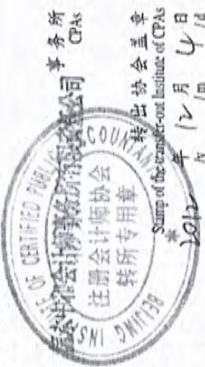 事务所
CPAs
转出协会盖章
Stamp of the transfer-out Institute of CPAs
2012年12月4日
/y /m /d
BEIJING INSTITUTE OF CERTIFIED PUBLIC ACCOUNTANTS
注册会计师协会
转所专用章